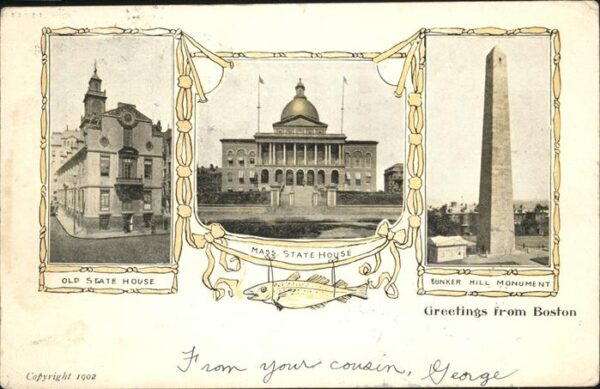 MASS. STATE HOUSE
OLD STATE HOUSE
BUNKER HILL MONUMENT
Greetings from Boston
From your cousin, George
Copyright 1902